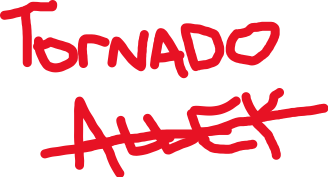 TORNADO
ALLEY